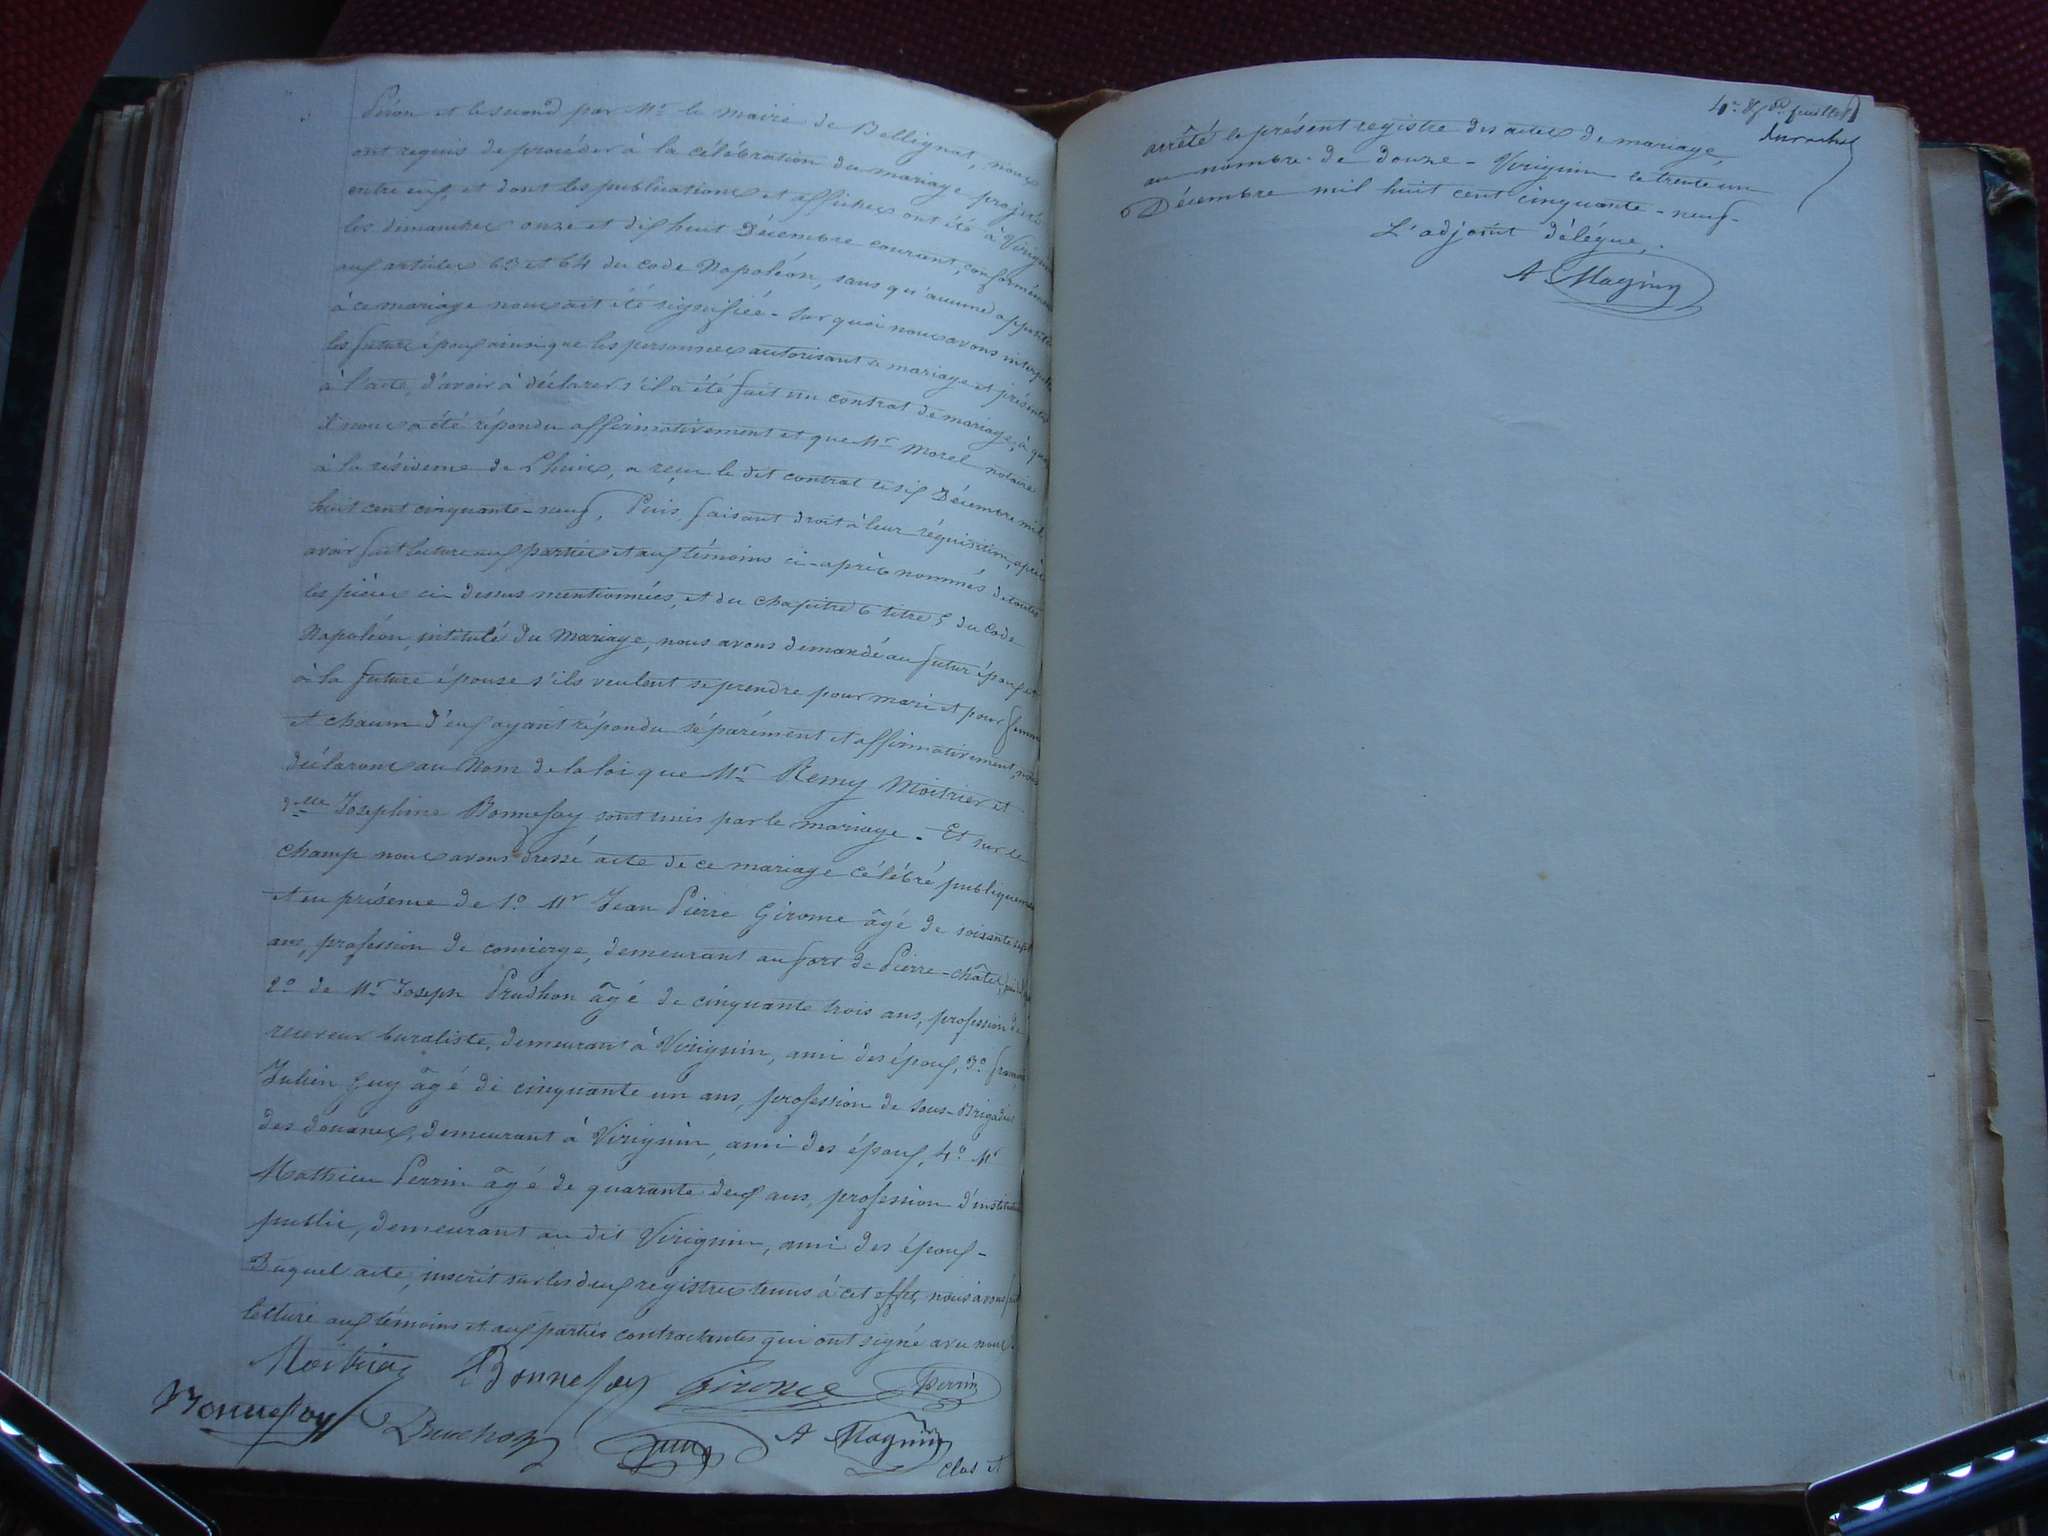 Péron et le second par Mr le maire de Bellignat, nous
ont requis de procéder à la célébration du mariage projeté
entre eux, et dont les publications et affiches ont été à Virignin
les dimanches onze et dix huit Décembre courant, conformément
aux articles 63 et 64 du code Napoléon, sans qu'aucune opposition
à ce mariage nous ait été signifiée - Sur quoi nous avons interpellé
les futurs époux ainsi que les personnes autorisant le mariage et présentes
à l'acte, d'avoir à déclarer s'il a été fait un contrat de mariage, à quoi
il nous a été répondu affirmativement et que Mr Morel notaire
à la résidence de Lhuis, a reçu le dit contrat le six Décembre mil
huit cent cinquante-neuf, Puis, faisant droit à leur réquisition, après
avoir fait lecture aux parties et aux témoins ci-après nommés de toutes
les pièces ci dessus mentionnées, et du chapitre 6 titre 5 du Code
Napoléon, intitulé du Mariage, nous avons demandé au futur époux et
à la future épouse s'ils veulent se prendre pour mari et pour femme
et chacun d'eux ayant répondu séparément et affirmativement, nous
déclarons au Nom de la loi que Mr Remy Moitrier et
Dlle Josephine Bonnefoy sont unis par le mariage. Et sur le
champ nous avons dressé acte de ce mariage célébré publiquement
et en présence de 1o Mr Jean Pierre Girome âgé de soixante sept
ans, profession de concierge, demeurant au fort de Pierre-châtel,
2o de Mr Joseph Prudhon âgé de cinquante trois ans, profession de
receveur buraliste, demeurant à Virignin, ami des époux, 3o françois
Julien Guy âgé de cinquante un ans, profession de Sous-Brigadier
des douanes, demeurant à Virignin, ami des époux, 4o Mr
Mathieu Perrin âgé de quarante deux ans, profession d'instituteur
public, demeurant au dit Virignin, ami des époux -
Duquel acte, inscrit sur les deux registres tenus à cet effet, nous avons fait
lecture aux témoins et aux parties contractantes qui ont signé avec nous.
Moitrier Bonnefoy Girome Perrin
Bonnefoy Prudhon Guy A Magnin
Clos et
4e & feuillet
arrêté le présent registre des actes de mariage,
au nombre de douze - Virignin le trente un
Décembre mil huit cent cinquante-neuf-
L'adjoint délégué,
A Magnin